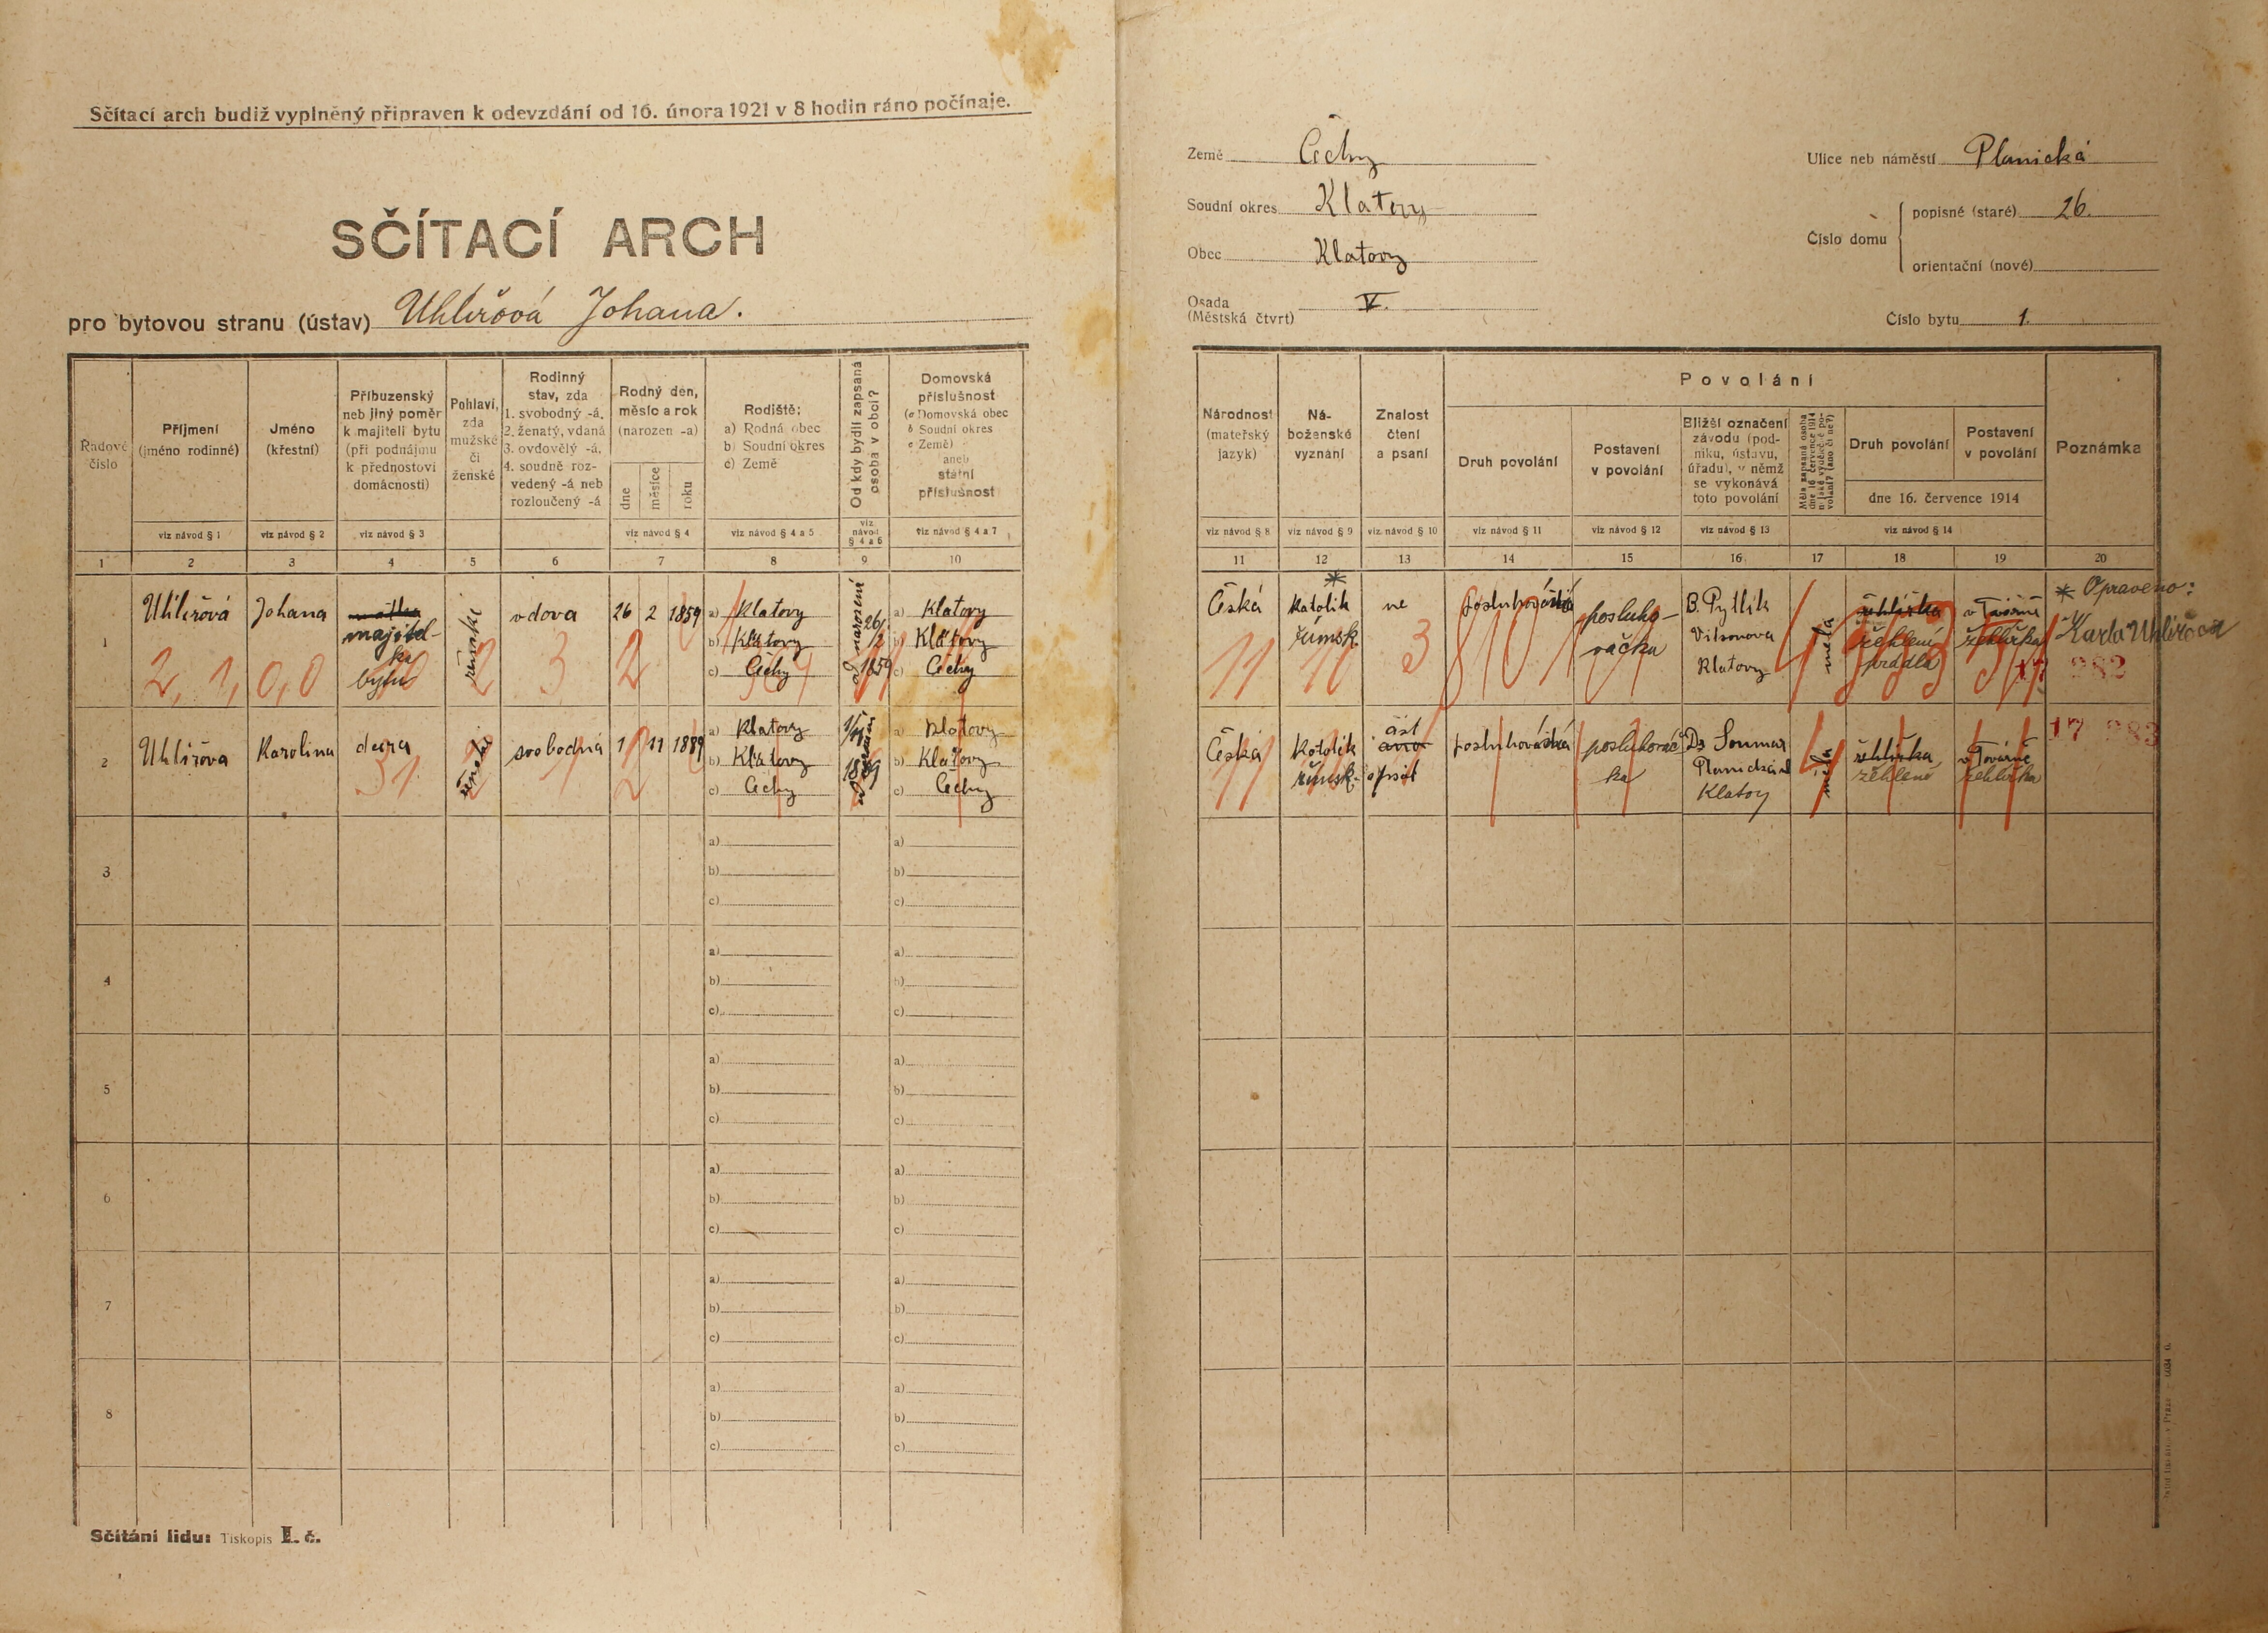 Sčítací arch budiž vyplněný připraven k odevzdání od 16. února 1921 v 8 hodin ráno počínaje.
SČÍTACÍ ARCH
pro bytovou stranu (ústav) Uhlířová Johana.
Země Čechy
Soudní okres Klatovy
Obec Klatovy
Osada V.
(Městská čtvrť)
Ulice neb náměstí Planická
Číslo domu
popisné (staré) 26.
orientační (nové)
Číslo bytu 1.
Řadové číslo
Příjmení
(jméno rodinné)
Jméno
(křestní)
Příbuzenský
neb jiný poměr
k majiteli bytu
(při podnájmu
k přednostovi
domácnosti)
Pohlaví,
zda
mužské
či
ženské
Rodinný
stav, zda
1. svobodný -á,
2. ženatý, vdaná
3. ovdovělý -á,
4. soudně roz-
vedený -á neb
rozloučený -á
Rodný den,
měsíc a rok
(narozen -a)
dne
měsíce
roku
Rodiště:
a) Rodná obec
b) Soudní okres
c) Země
Od kdy bydlí zapsaná
osoba v obci?
Domovská
příslušnost
(a Domovská obec
b Soudní okres
c Země)
aneb
státní
příslušnost
viz návod § 1
viz návod § 2
viz návod § 3
viz návod § 4
viz návod § 4 a 5
viz
návod
§ 4 a 6
viz návod § 4 a 7
1 2 3 4 5 6 7 8 9 10
Národnost
(mateřský
jazyk)
Ná-
boženské
vyznání
Znalost
čtení
a psaní
Povolání
Druh povolání
Postavení
v povolání
Bližší označení
závodu (pod-
niku, ústavu,
úřadu), v němž
se vykonává
toto povolání
Měla zapsaná osoba
dne 16 července 1914
nějaké výdělečné po-
volání? (ano či ne?)
Druh povolání
Postavení
v povolání
dne 16. července 1914
Poznámka
viz návod § 8
viz návod § 9
viz návod § 10
viz návod § 11
viz návod § 12
viz návod § 13
viz návod § 14
11 12 13 14 15 16 17 18 19 20
1
Uhlířová
Johana
matka
majitel-
ka
bytu
ženské
vdova
26 2 1859
a) Klatovy
b) Klatovy
c) Čechy
od narození
26/2
1859
a) Klatovy
b) Klatovy
c) Čechy
2, 1, 0,0
2
3
2
Česká
Katolík
římsk.
ne
posluhovačka
posluho-
vačka
B. Pytlík
Vilsonova
Klatovy
měla
žehlířka
žehlení
prádla
v Továrně
žehlířka
* Opraveno:
Karla Uhlířová
17 982
11
10
3
2
Uhlířova
Karolina
dcera
ženské
svobodná
1 11 1889
a) Klatovy
b) Klatovy
c) Čechy
1/11
1889
od narození
a) Klatovy
b) Klatovy
c) Čechy
31
Česká
Katolík
římsk.
číst
ano
a psát
posluhovačka
posluhovač
ka
Dr Soumar
Planická ul
Klatovy
měla
žehlířka
žehlení
v Továrně
žehlířka
17 983
3
a)
b)
c)
a)
b)
c)
4
a)
b)
c)
a)
b)
c)
5
a)
b)
c)
a)
b)
c)
6
a)
b)
c)
a)
b)
c)
7
a)
b)
c)
a)
b)
c)
8
a)
b)
c)
a)
b)
c)
Sčítání lidu: Tiskopis I. č.